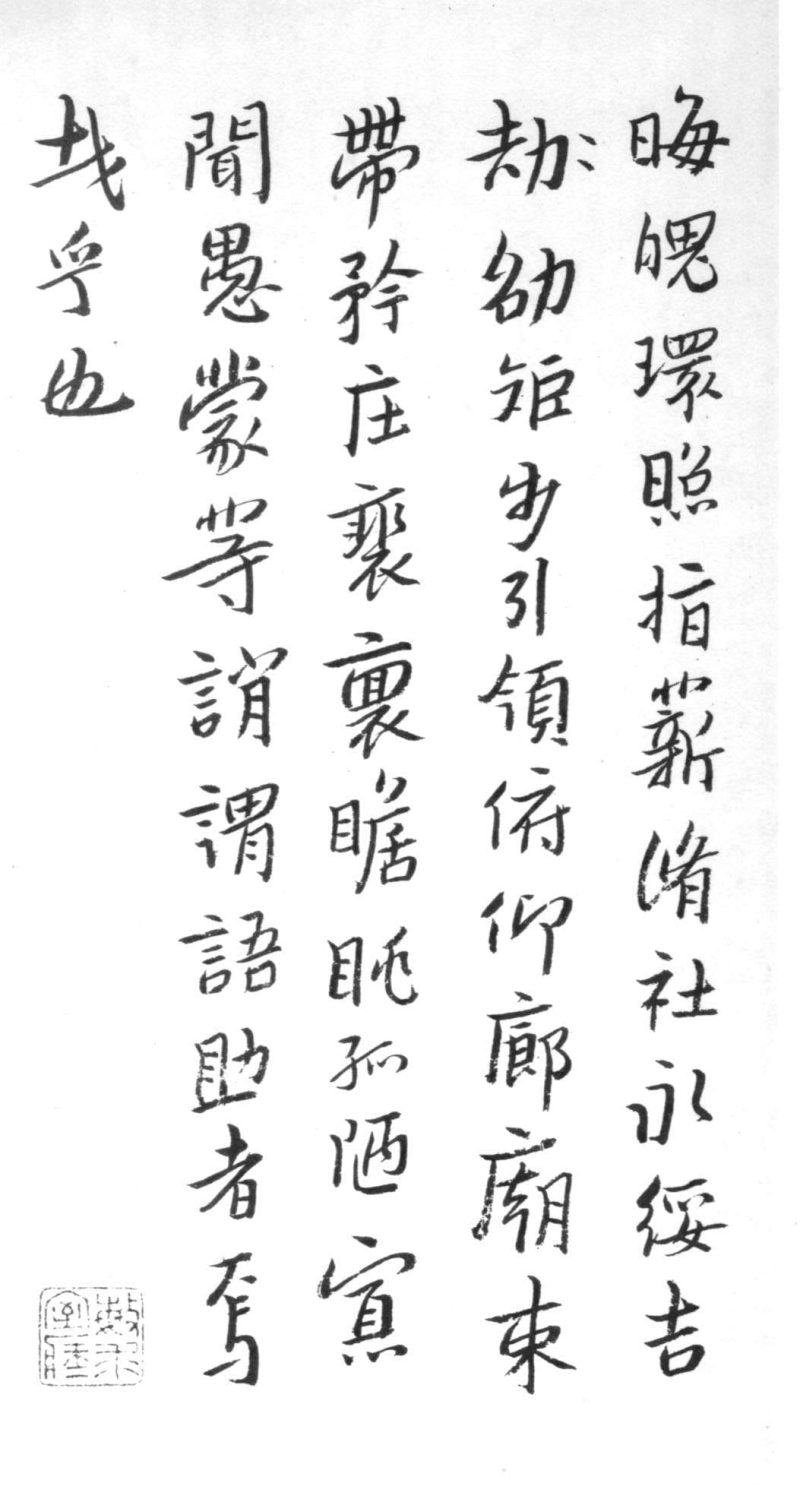 晦魄環照指薪脩社永綏吉
劫〻劭矩步引領俯仰廊廟束
帶矜庄裵裏瞻眺孤陋寡
聞愚蒙等誚謂語助者焉
哉乎也